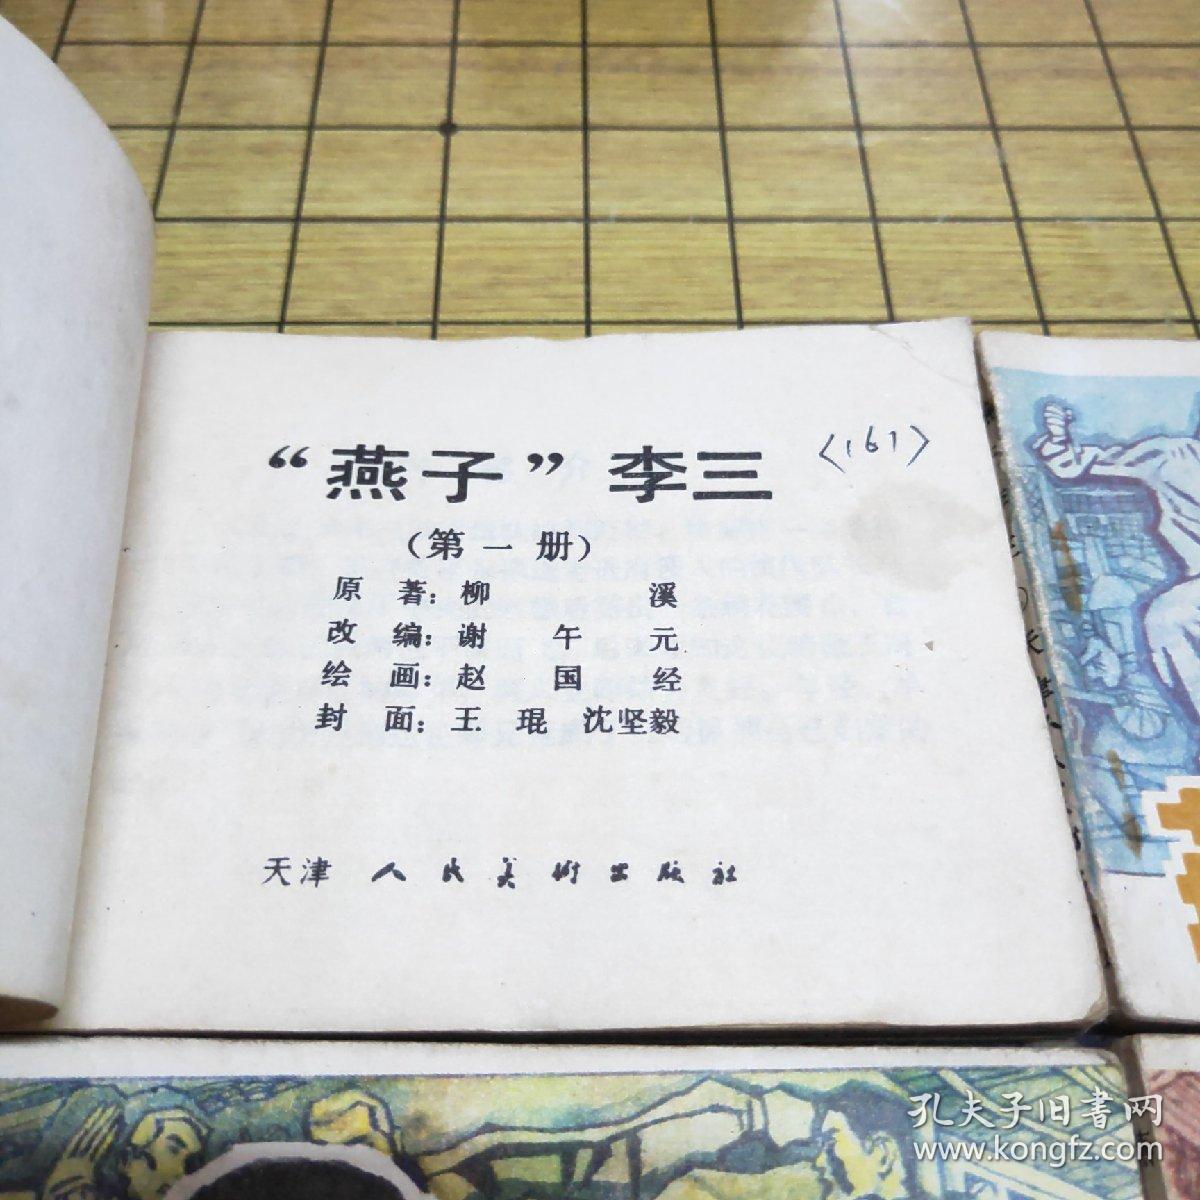 “燕子”李三
〈161〉
(第一册)
原著:柳溪
改编:谢午元
绘画:赵国经
封面:王琨 沈坚毅
天津人民美术出版社
孔夫子旧書网
www.kongfz.com